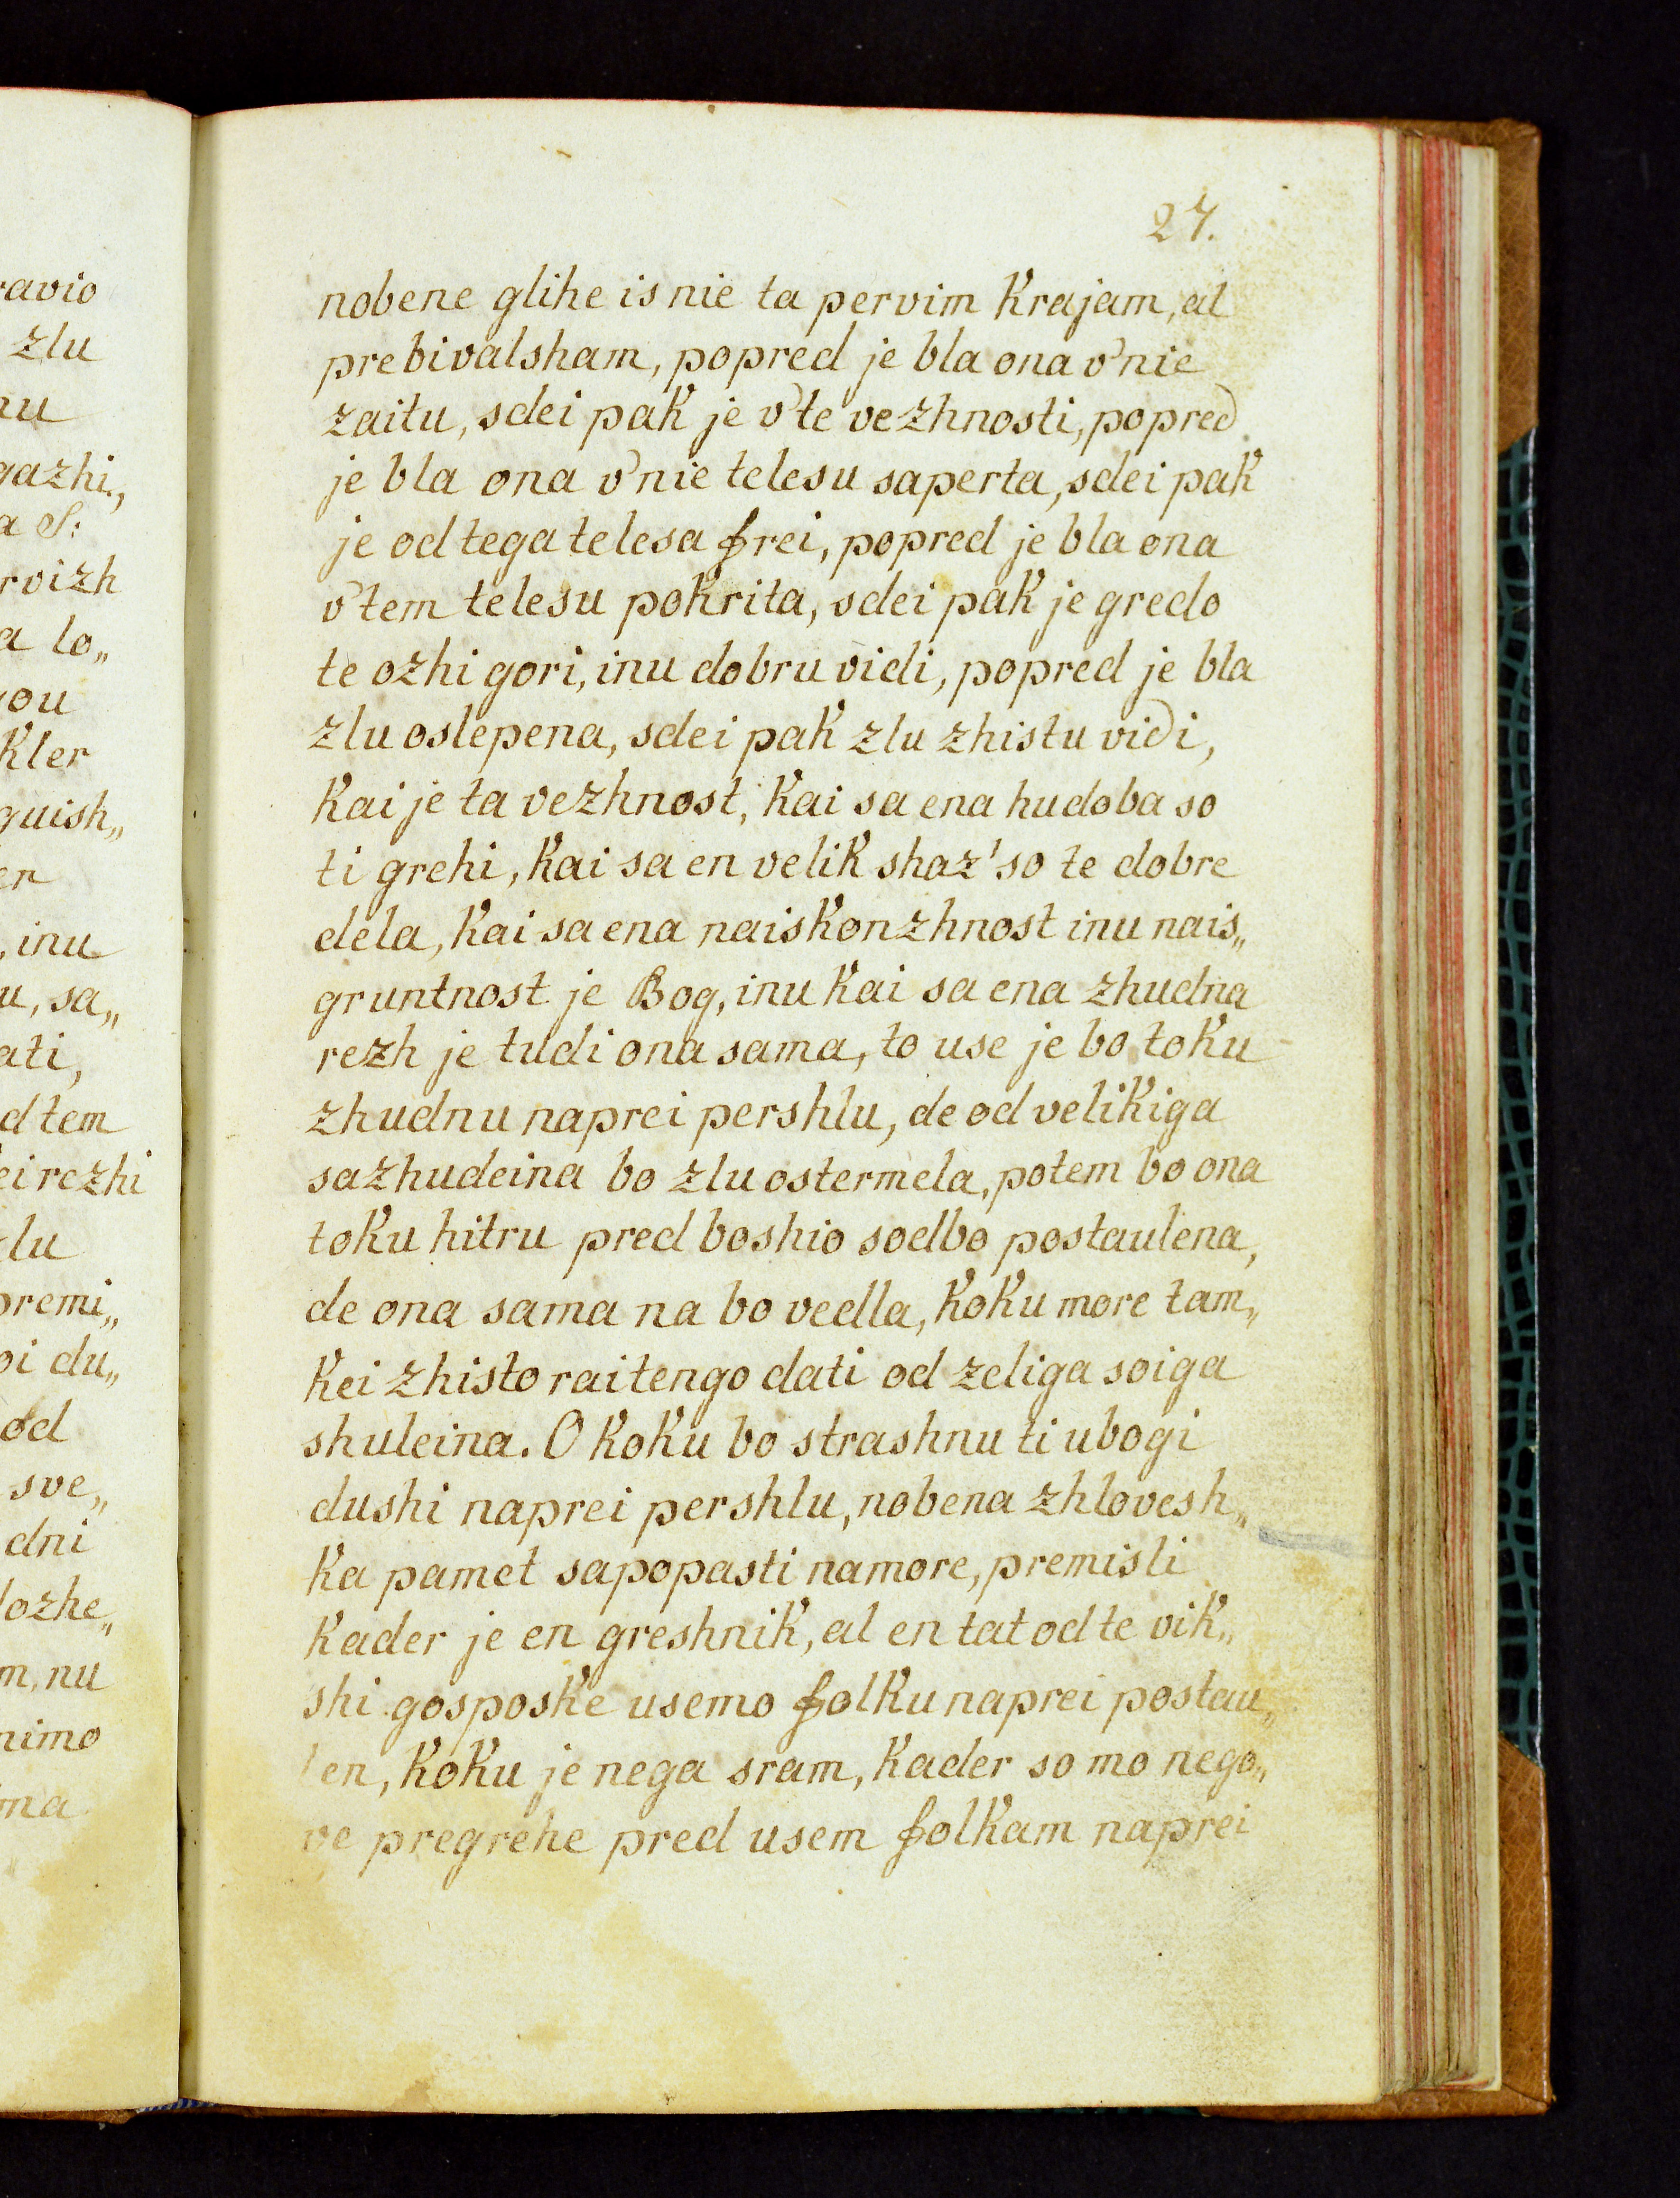 ravio
zlu
nu
gazhi,
a S:
rvizh
a lo„
vou
Kler
guish„
er
, inu
u, sa„
ati,
d tem
ei rezhi
zlu
premi„
oi du„
od
sve„
dni
lozhe„
m, nu
nimo
ma
27.
nobene glihe is nie ta pervim Krajam, al
prebivalsham, popred je bla ona v'nie
zaitu, sdei pak je v'te vezhnosti, popred
je bla ona v'nie telesu saperta, sdei pak
je od tega telesa frei, popred je bla ona
v'tem telesu pokrita, sdei pak je gredo
te ozhi gori, inu dobru vidi, popred je bla
zlu oslepena, sdei pak zlu zhistu vidi,
Kai je ta vezhnost, Kai sa ena hudoba so
ti grehi, Kai sa en velik shaz' so te dobre
dela, Kai sa ena naiskonzhnost inu nais„
gruntnost je Bog, inu Kai sa ena zhudna
rezh je tudi ona sama, to use je bo toku
zhudnu naprei pershlu, de od velikiga
sazhudeina bo zlu ostermela, potem bo ona
toku hitru pred boshio sodbo postaulena,
de ona sama na bo vedla, Koku more tam„
Kei zhisto raitengo dati od zeliga soiga
shuleina. O Koku bo strashnu ti ubogi
dushi naprei pershlu, nobena zhlovesh„
Ka pamet sapopasti namore, premisli
Kader je en greshnik, al en tat od te vik„
shi gosposke usemo folku naprei postau„
len, Koku je nega sram, Kader so mo nego„
ve pregrehe pred usem folkam naprei